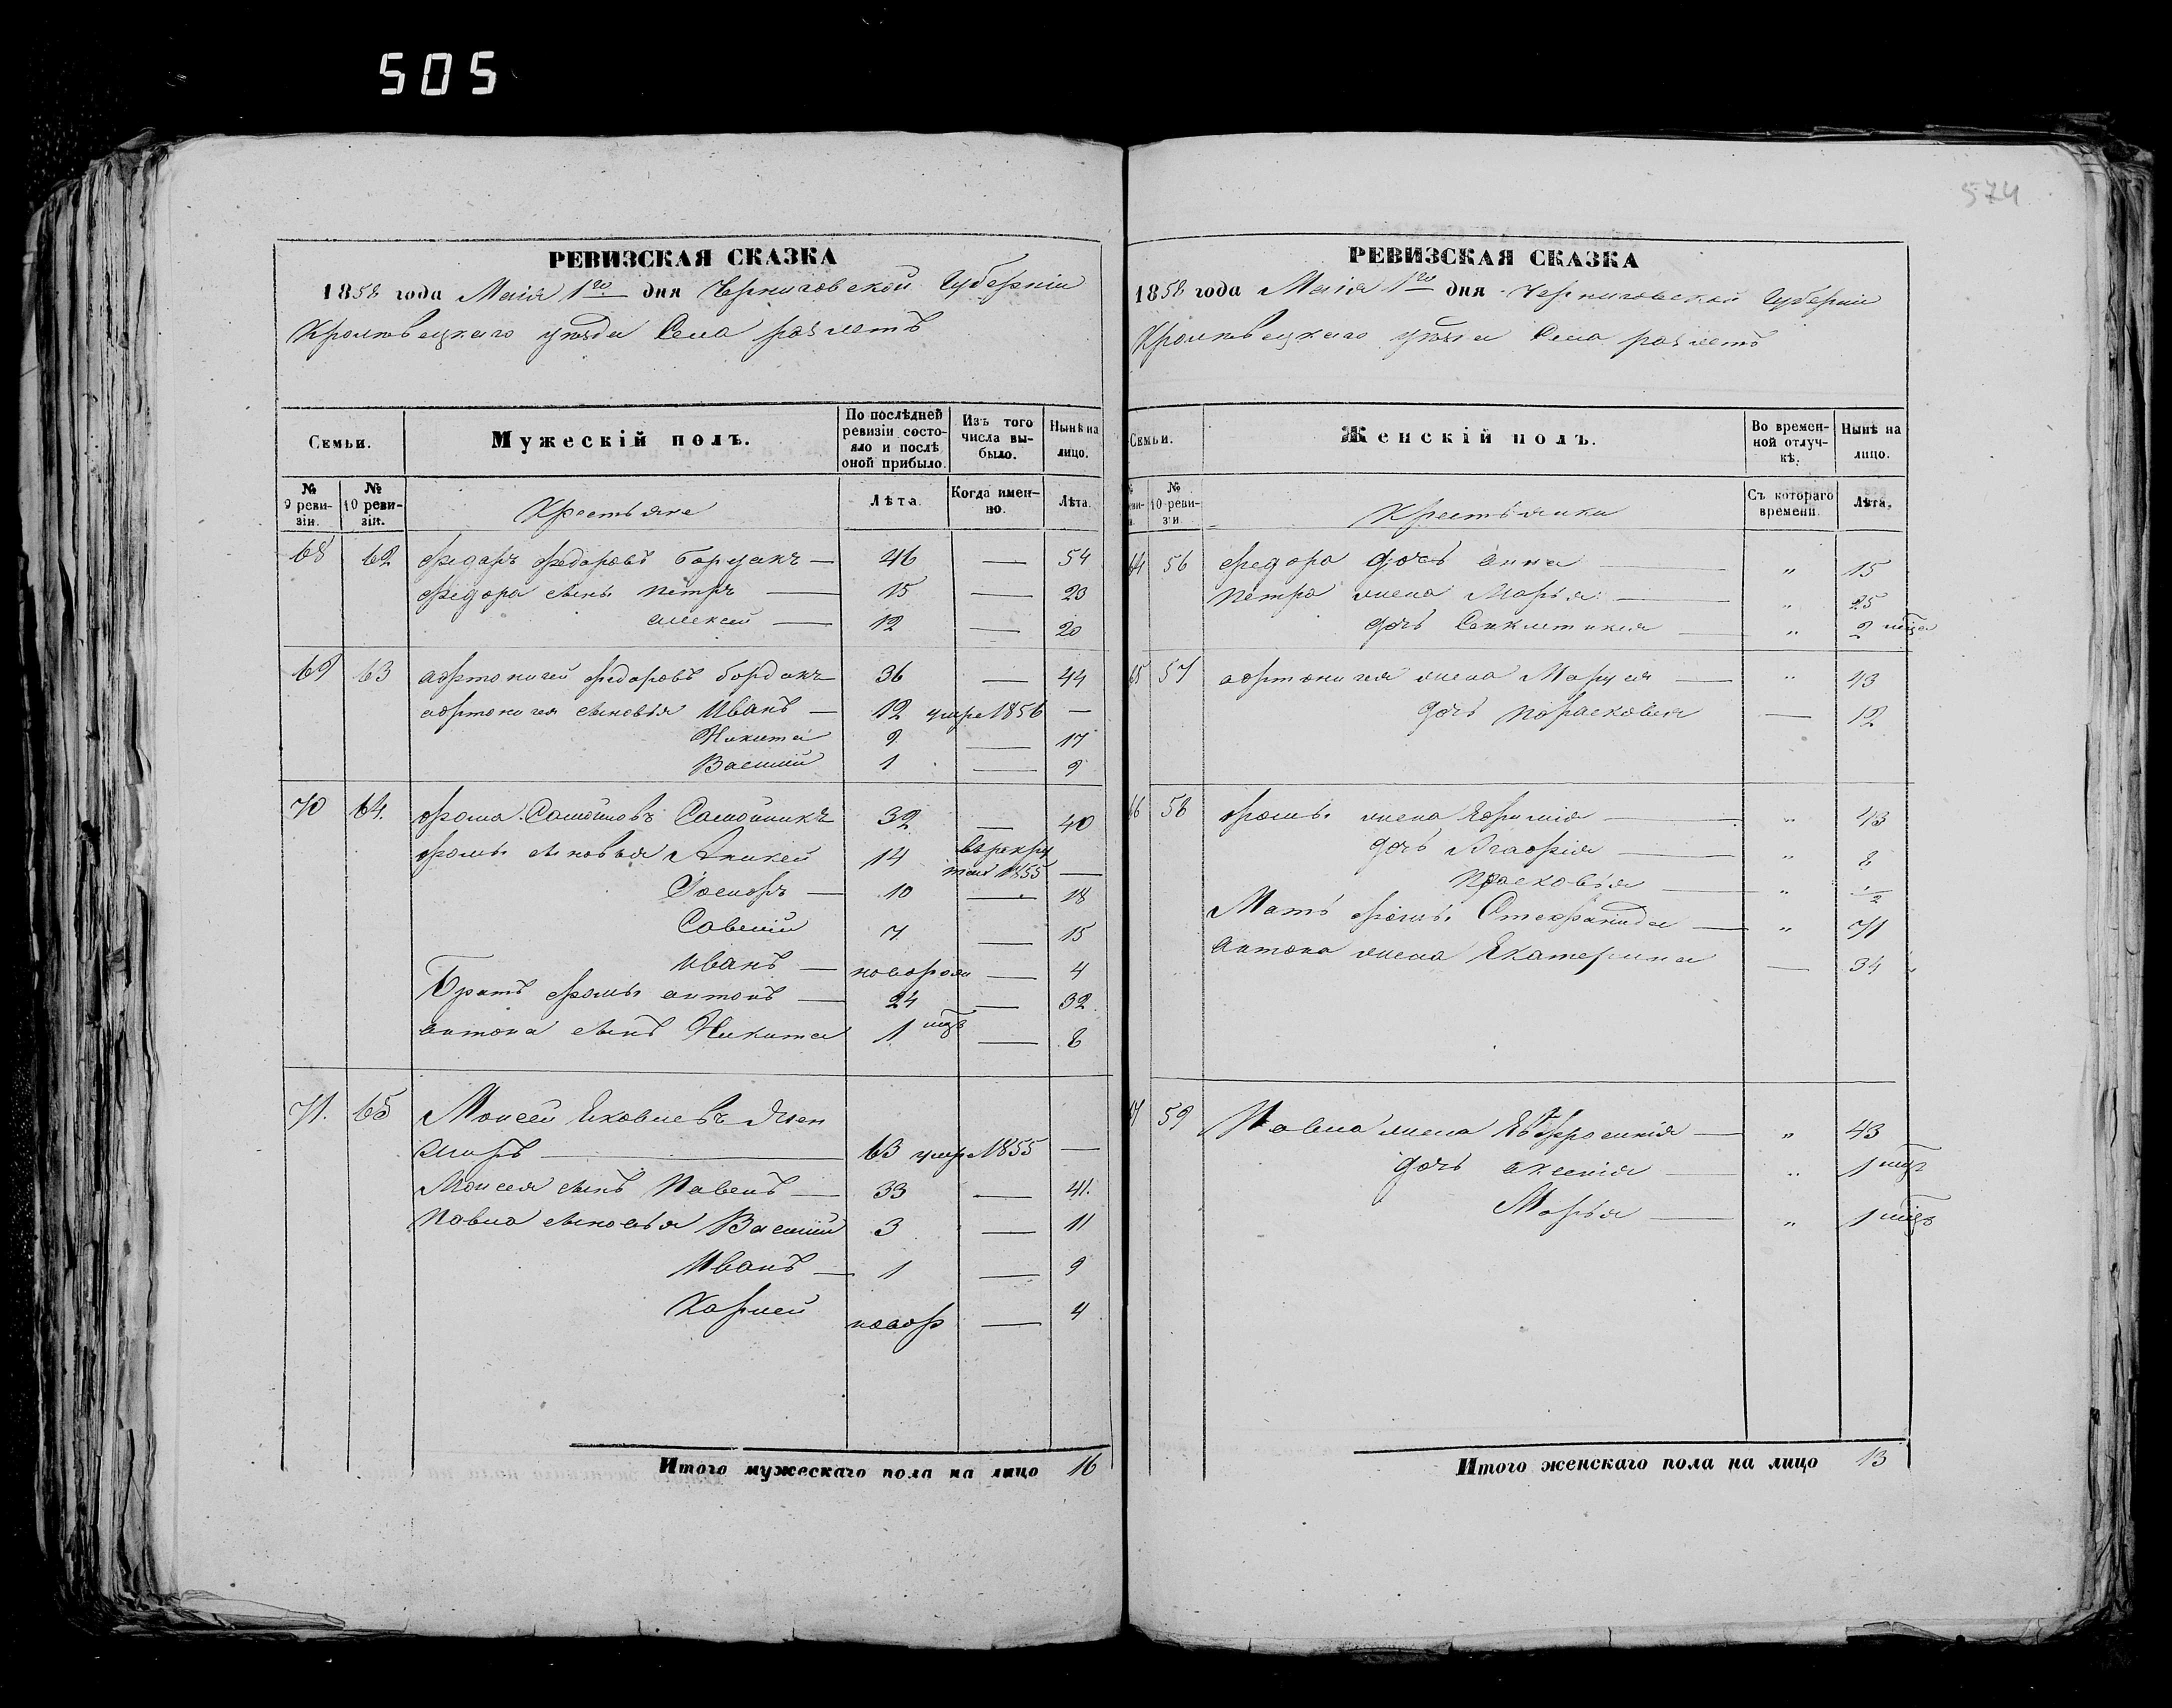 505
574
РЕВИЗСКАЯ СКАЗКА
1858 года Маія 1го дня Черниговской Губерніи
Кролевецкаго уѣзда Села
Семьи.
Мужескій полъ.
По послѣдней ревизіи состояло и послѣ оной прибыло.
Изъ того числа выбыло.
Нынѣ на лицо.
№ 9 ревизіи.
№ 10 ревизіи.
Крестьяне
Лѣта.
Когда именно.
Лѣта.
68 62 Федоръ Федоровъ — 46 — 54
Федора сынъ Петръ — 15 — 23
Алексей — 12 — 20
69 63 Федоровъ — 36 — 44
сыновья Иванъ — 12 умре 1856 —
Никита 9 — 17
Василий 1 — 9
70 64. Фома Самойловъ 32 — 40
Фомы сыновья Аникей 14 въ рекруты 1855 —
Іосифъ — 10 — 18
Савелій 7 — 15
Иванъ — новорож — 4
Братъ Фомы Антонъ — 24 — 32
Антона сынъ Никита 1 мцъ — 8
71. 65 Моисей Яковлевъ
— 63 умре 1855 —
Моисея сынъ Павелъ — 33 — 41.
Павла сыновья Василий 3 — 11
Иванъ — 1 — 9
Карней новор — 4
Итого мужескаго пола на лицо 16
РЕВИЗСКАЯ СКАЗКА
1858 года Маія 1го дня Черниговской Губерніи
Кролевецкаго уѣзда Села
Семьи.
Женскій полъ.
Во временной отлучкѣ.
Нынѣ на лицо.
10 ревизіи
Крестьянки
Съ котораго времени.
Лѣта.
64 56 Федора дочь Анна — „ 15
Петра жена Марья — „ 25
дочь Синклитикия — „ 2 мцъа
65 57 жена — „ 43
дочь Парасковия — 12
66 58 Фомы жена — „ 43
дочь Агафія — „ 8
Прасковія — „ ½
Мать Фомы Стефанида — „ 71
Антона жена Екатерина — 34
67 59 Павла жена Евфросинія — „ 43
дочь Аксенія — „ 1 мцъ
Марья — „ 1 мцъ
Итого женскаго пола на лицо 13